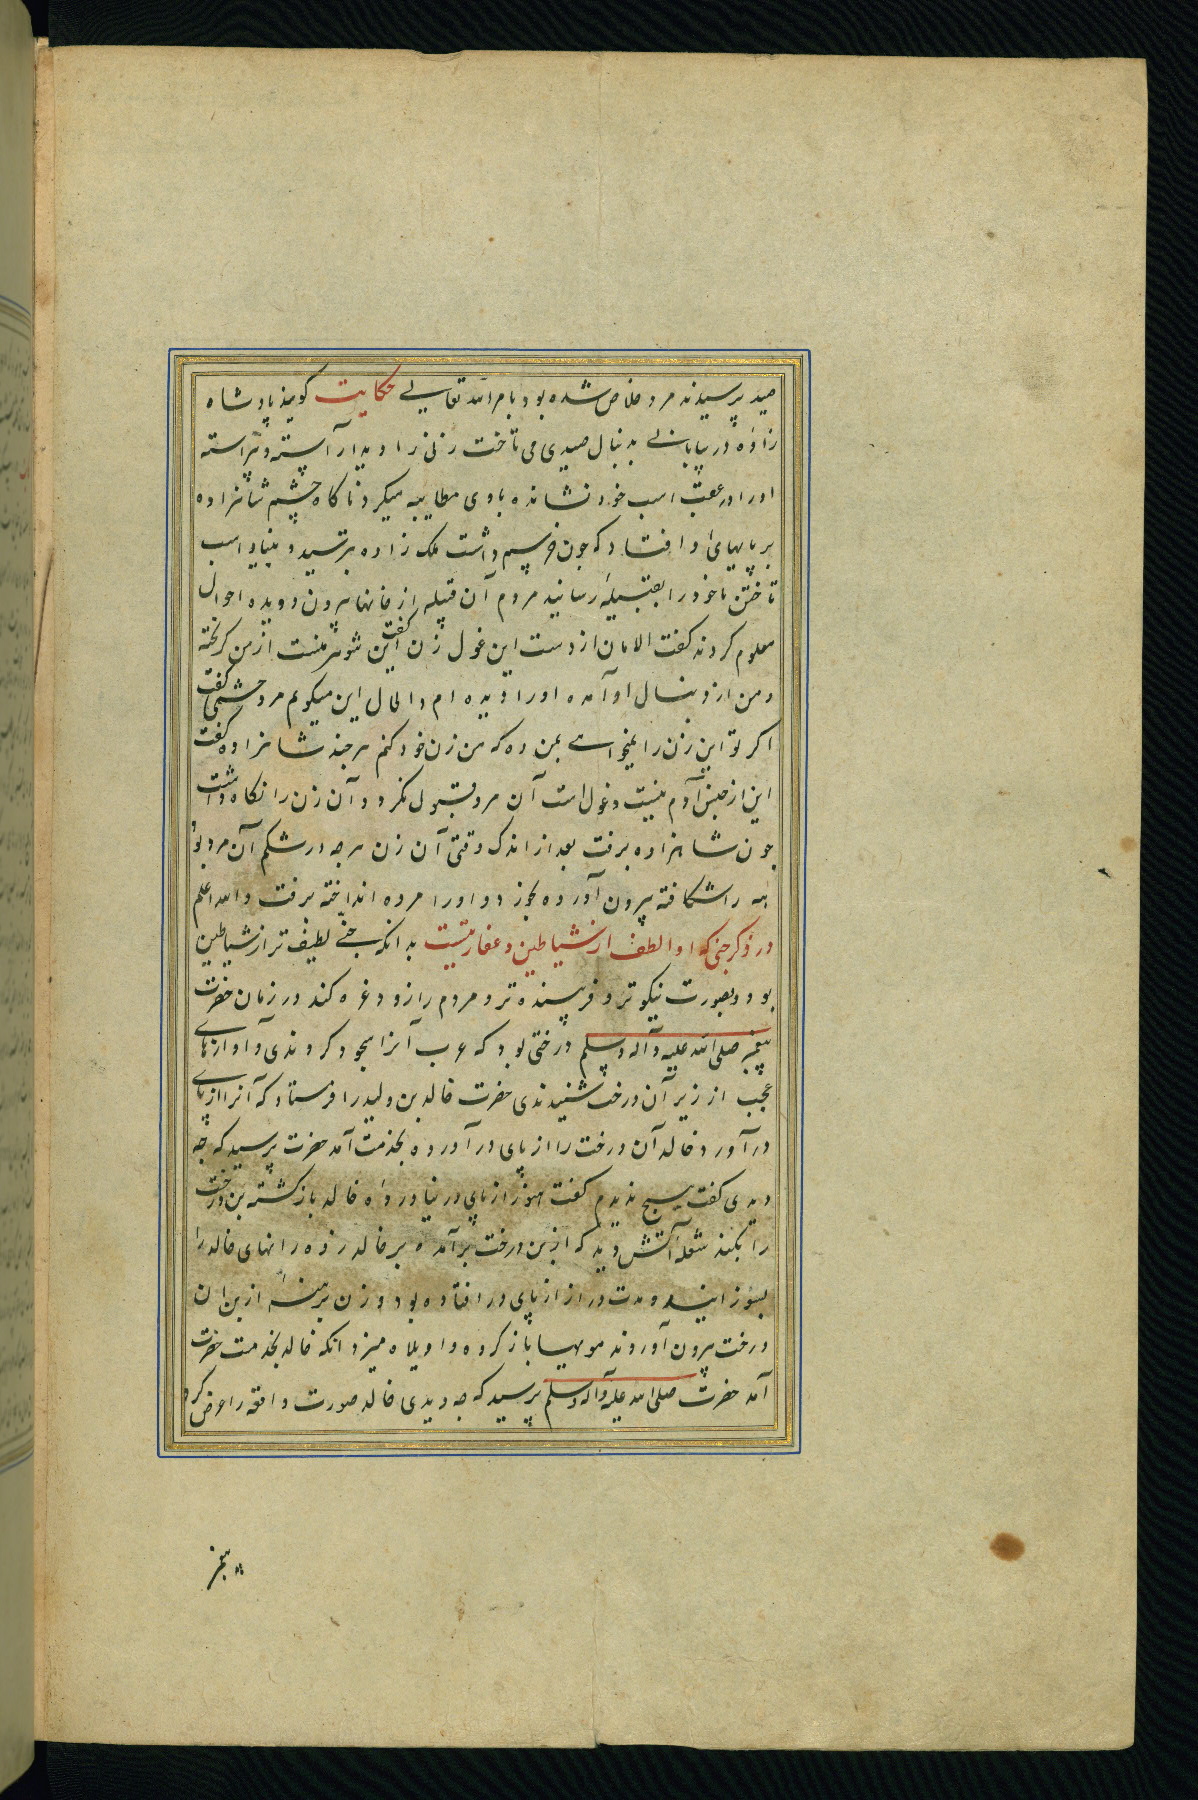 صید پرسیدند مرد خلاص شده بود بامر الله تعالی حکایت کویند پادشاه
زاده در بیابانی بدنبال صیدی می تاخت زنی را دید آراسته و پیراسته
او را در عقب اسب خود نشانده با وی مطایبه میکرد ناکاه چشم شاهزاده
بر پایهای او افتاد که جون خر سم داشت ملک زاده بترسید و بنیاد اسب
تاختن تا خود را بقبیلهٔ رسانید مردم آن قبیله از خانها بیرون دویده احوال
معلوم کردند کفت الامان از دست این غول زن کفت این شوهر منست از من کریخته
و من از دنبال او آمده او را دیده ام والحال این میکویم مرد حبشی کفت
اکر تو این زن را نمیخواهی بمن ده که من زن خود کنم هرجند شاهزاده کفت
این از جنس آدم نیست و غول است آن مرد قبول نکرد و آن زن را نکاه داشت
جون شاهزاده برفت بعد از اندک وقتی آن زن هرجه در شکم آن مرد بود
همه را شکافته بیرون آورده بخورد و او را مرده انداخته برفت والله اعلم
در ذکر جنی که او الطف از شیاطین و عفاریتست بدانکه جنی لطیف تر از شیاطین
بود و بصورت نیکوتر و فریبنده تر و مردم را زود غره کند در زمان حضرت
پیغمبر صلی الله علیه وآله وسلم درختی بود که عرب آنرا سجود کردندی و آوازهای
عجب از زیر آن درخت شنیدندی حضرت خالد بن ولید را فرستاد که آنرا از پای
درآورد خالد آن درخت را از پای درآورده بخدمت آمد حضرت پرسید که چه
دیدی کفت هیچ ندیدم کفت هنوز از پای در نیاورده خالد بازکشته بن درخت
را بکند شعلهٔ آتش دید که از بن درخت برآمده بر خالد زده رانهای خالد را
بسوزانید و مدت دراز از پای در افتاده بود و زن برهنه از بن آن
درخت بیرون آوردند مویها باز کرده واویلاه میزد انکه خالد بخدمت حضرت
آمد حضرت صلی الله علیه وآله وسلم پرسید که جه دیدی خالد صورت واقعه را عرض کرد